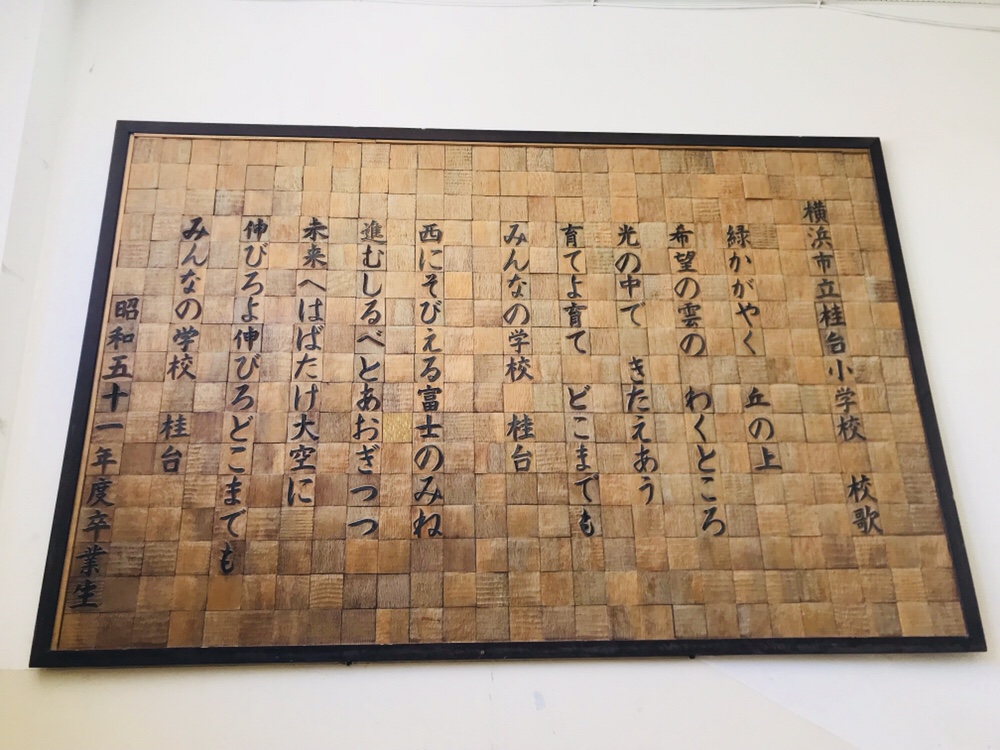 横浜市立桂台小学校　校歌
緑かがやく　丘の上
希望の雲の　わくところ
光の中で　きたえあう
育てよ育て　どこまでも
みんなの学校　桂台
西にそびえる富士のみね
進むしるべとあおぎつつ
未来へはばたけ大空に
伸びろよ伸びろどこまでも
みんなの学校　桂台
昭和五十一年度卒業生